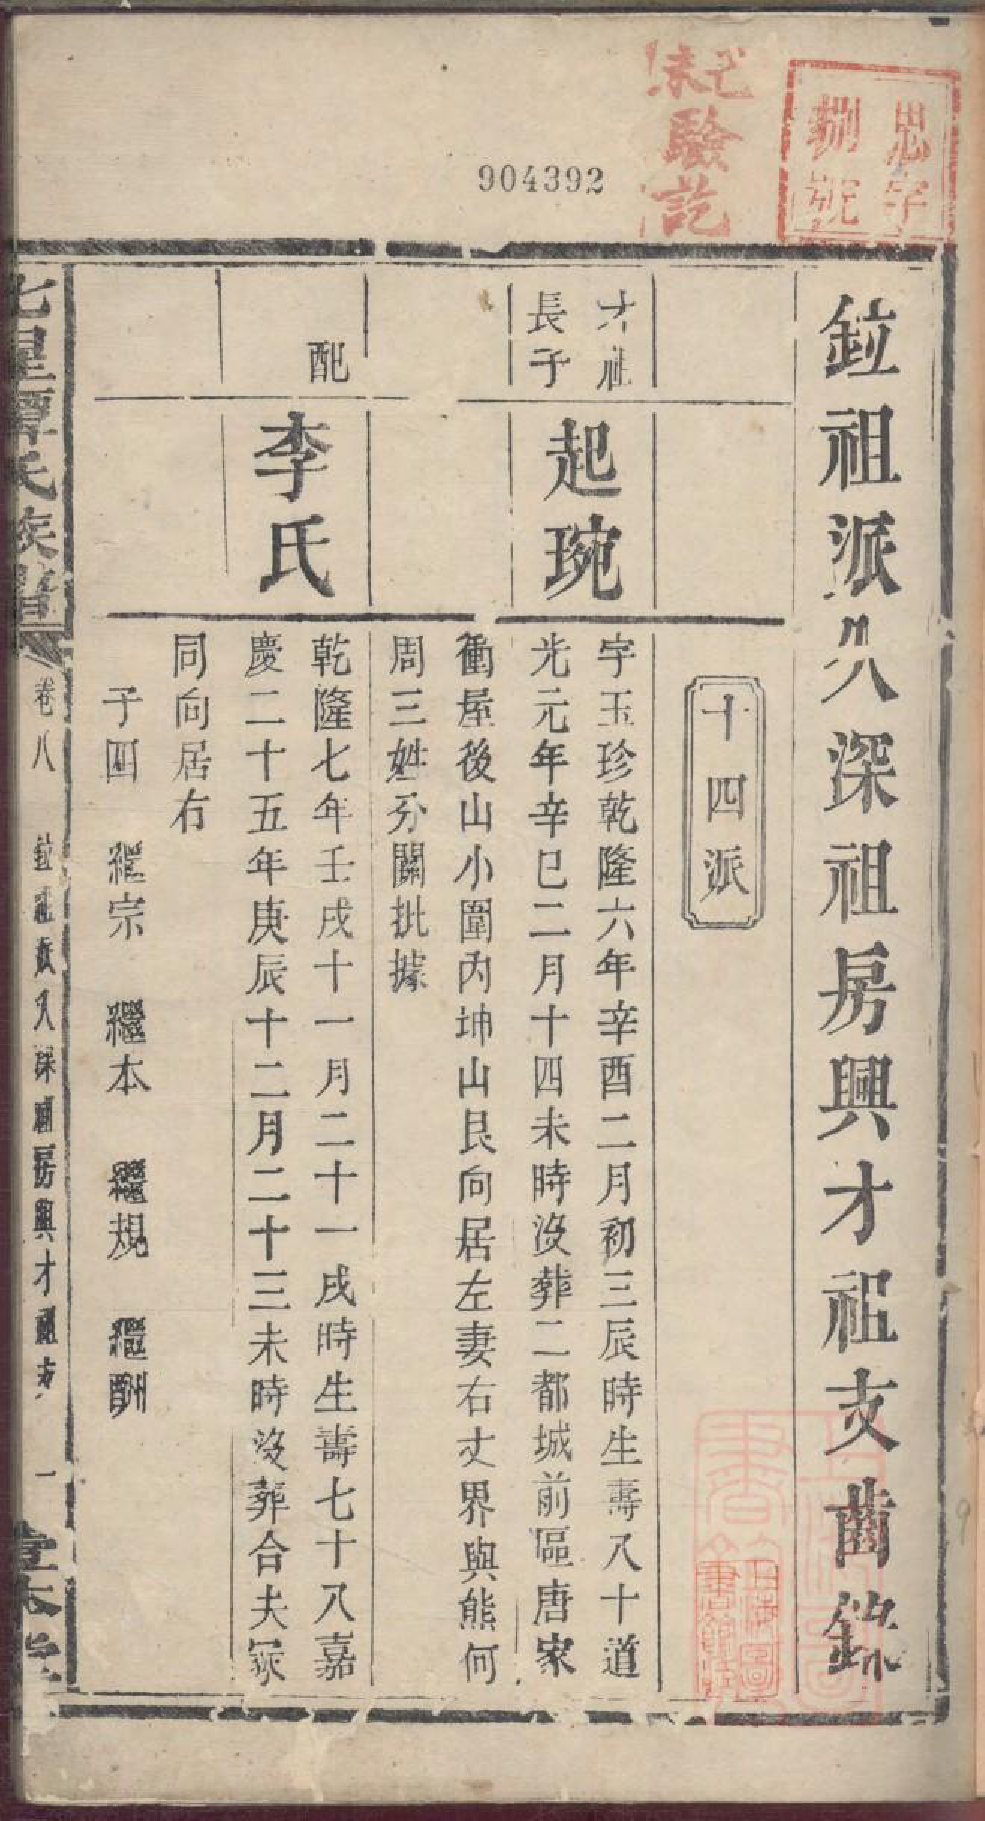 思字
捌號
驗訖
904392
鉝祖派久深祖房興才祖支齒錄
十四派
才祖
長子
起琬
字玉珍乾隆六年辛酉二月初三辰時生壽八十道
光元年辛巳二月十四未時沒葬二都城前區唐家
衝屋後山小圍內坤山艮向居左妻右丈界與熊何
周三姓分關批據
配
李氏
乾隆七年壬戌十一月二十一戌時生壽七十八嘉
慶二十五年庚辰十二月二十三未時沒葬合夫冢
同向居右
子四 繼宗 繼本 繼規 繼酬
七星譚氏族譜
卷八
鉝祖派久深祖房興才祖支
一
壹本堂
上海圖書館藏